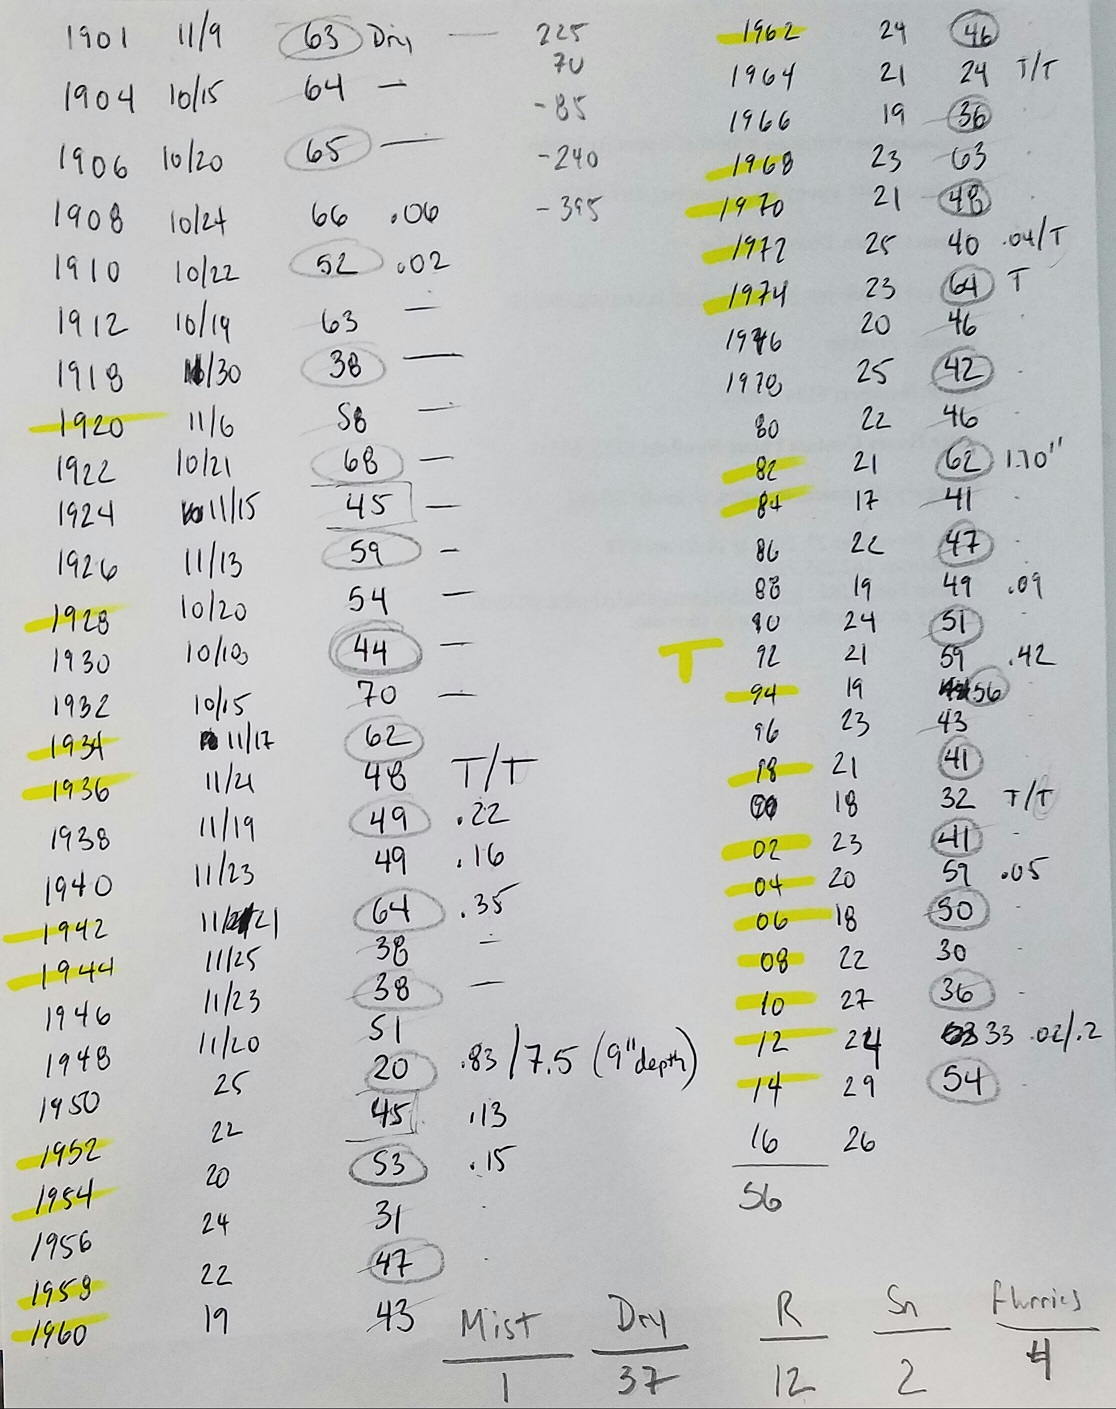 1901 11/9 63 Dry — 225
70
1904 10/15 64 —
-85
1906 10/20 65 — -240
1908 10/24 66 .06 -395
1910 10/22 52 .02
1912 10/19 63 —
1918 /30 38 —
1920 11/6 58 —
1922 10/21 68 —
1924 11/15 45 —
1926 11/13 59 —
1928 10/20 54 —
1930 10/18 44 —
1932 10/15 70 —
1934 11/17 62
1936 11/21 48 T/T
1938 11/19 49 .22
1940 11/23 49 .16
1942 11/21 64 .35
1944 11/25 38 —
1946 11/23 38 —
1948 11/20 51
1950 25 20 .83/7.5 (9" depth)
1952 22 45 .13
1954 20 53 .15
1956 24 31
1958 22 47
1960 19 43
1962 24 46
1964 21 24 T/T
1966 19 36
1968 23 63
1970 21 48
1972 25 40 .04/T
1974 23 64 T
1976 20 46
1978 25 42
80 22 46
82 21 62 1.10"
84 17 41
86 22 47
88 19 49 .09
90 24 51
T 92 21 59 .42
94 19 56
96 23 43
98 21 41
00 18 32 T/T
02 23 41
04 20 59 .05
06 18 50
08 22 30
10 27 36
12 24 33 .02/.2
14 29 54
16 26
56
Mist Dry R Sn flurries
1 37 12 2 4